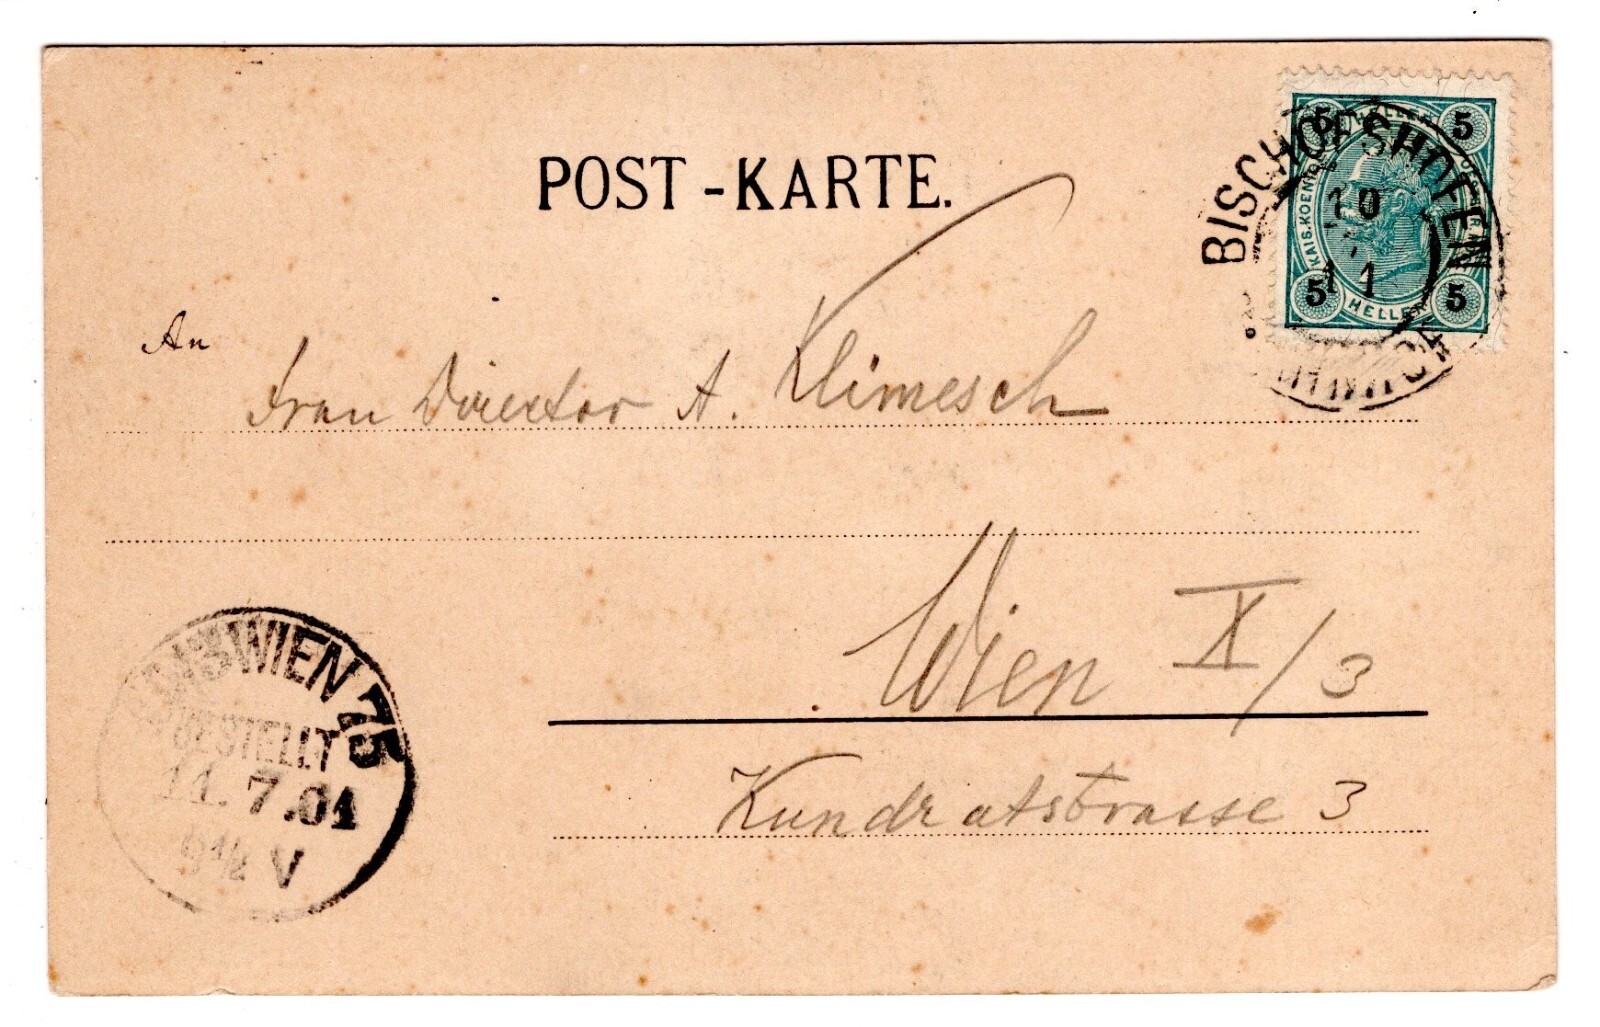 POST-KARTE.
BISCHOFSHOFEN
10
7
11
5 5
KAIS. KOENIG.
5 HELLER 5
An
Frau Director A. Klimesch
Wien X/3
Kundratstrasse 3
WIEN 75
BESTELLT
11.7.01
9½ V